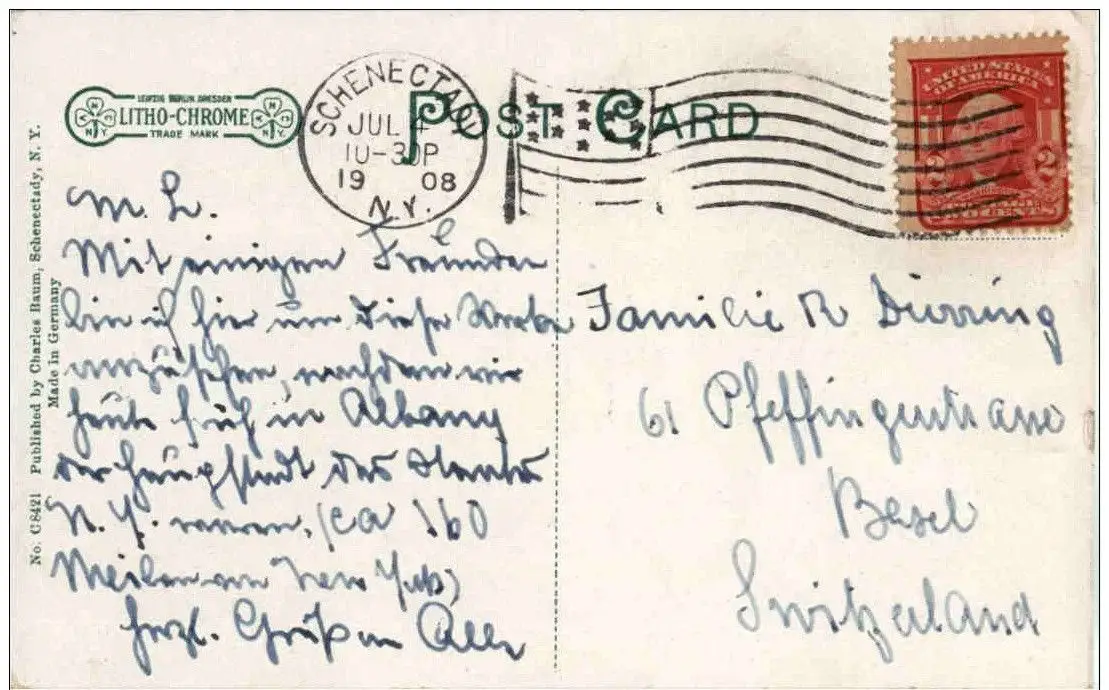 LEIPZIG BERLIN DRESDEN
LITHO-CHROME
TRADE MARK
N N Y
N N Y
POST CARD
SCHENECTADY
JUL 4
10-30P
19 08
N.Y.
UNITED STATES OF AMERICA
2 2
TWO CENTS
No. C8421 Published by Charles Baum, Schenectady, N. Y.
Made in Germany
M. L.
Mit einigen Freunden
bin ich hier um diese Werke
anzusehen, nachdem wir
heute früh in Albany
der Hauptstadt des Staates
N. Y. waren, (ca 160
Meilen von New York)
herzl. Gruß an Alle
Familie R Dürring
61 Pfeffingerstrasse
Basel
Switzerland